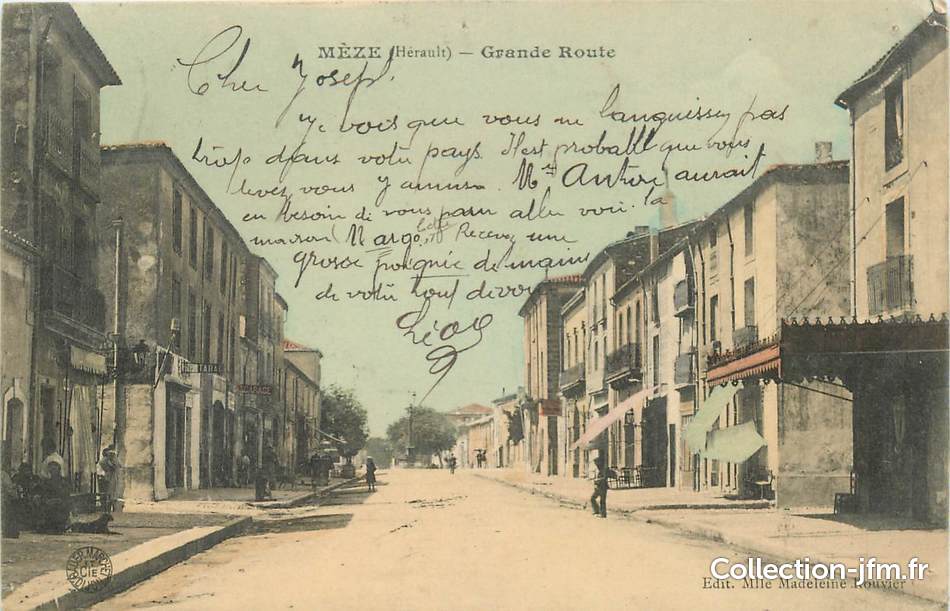 MÈZE (Hérault) — Grande Route
Cher Joseph
Je vois que vous ne languissez pas
trop dans votre pays. Il est probable que vous
devez vous y amuser. Antoi aurait
eu besoin de vous pour aller voir la
maison Recevez une
grosse poignée de mains
de votre tout dévoué
Léon
TABA
Collection-jfm.fr
Edit. Mlle Madeleine Rouvier